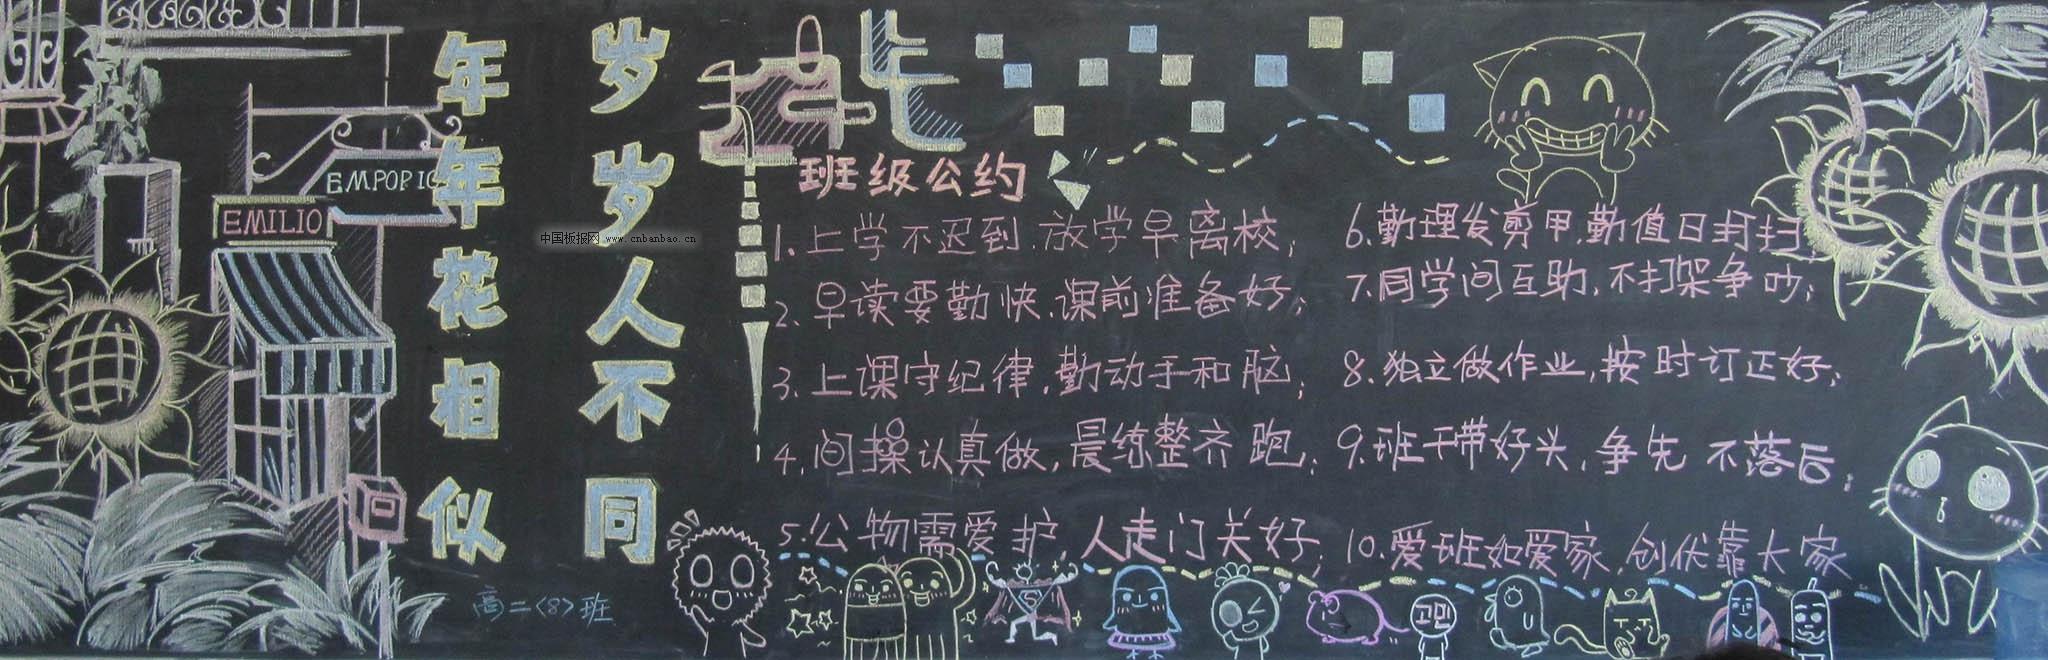 年年花相似
岁岁人不同
EMILIO
EMPORIO
中国板报网 www.cnbanbao.cn
班级公约
1.上学不迟到.放学早离校;
2.早读要勤快.课前准备好;
3.上课守纪律,勤动手和脑;
4.间操认真做,晨练整齐跑;
5.公物需爱护,人走门关好;
6.勤理发剪甲,勤值日打扫;
7.同学间互助,不打架争吵;
8.独立做作业,按时订正好;
9.班干带好头,争先不落后;
10.爱班如爱家,创优靠大家
高二<8>班
S
고민